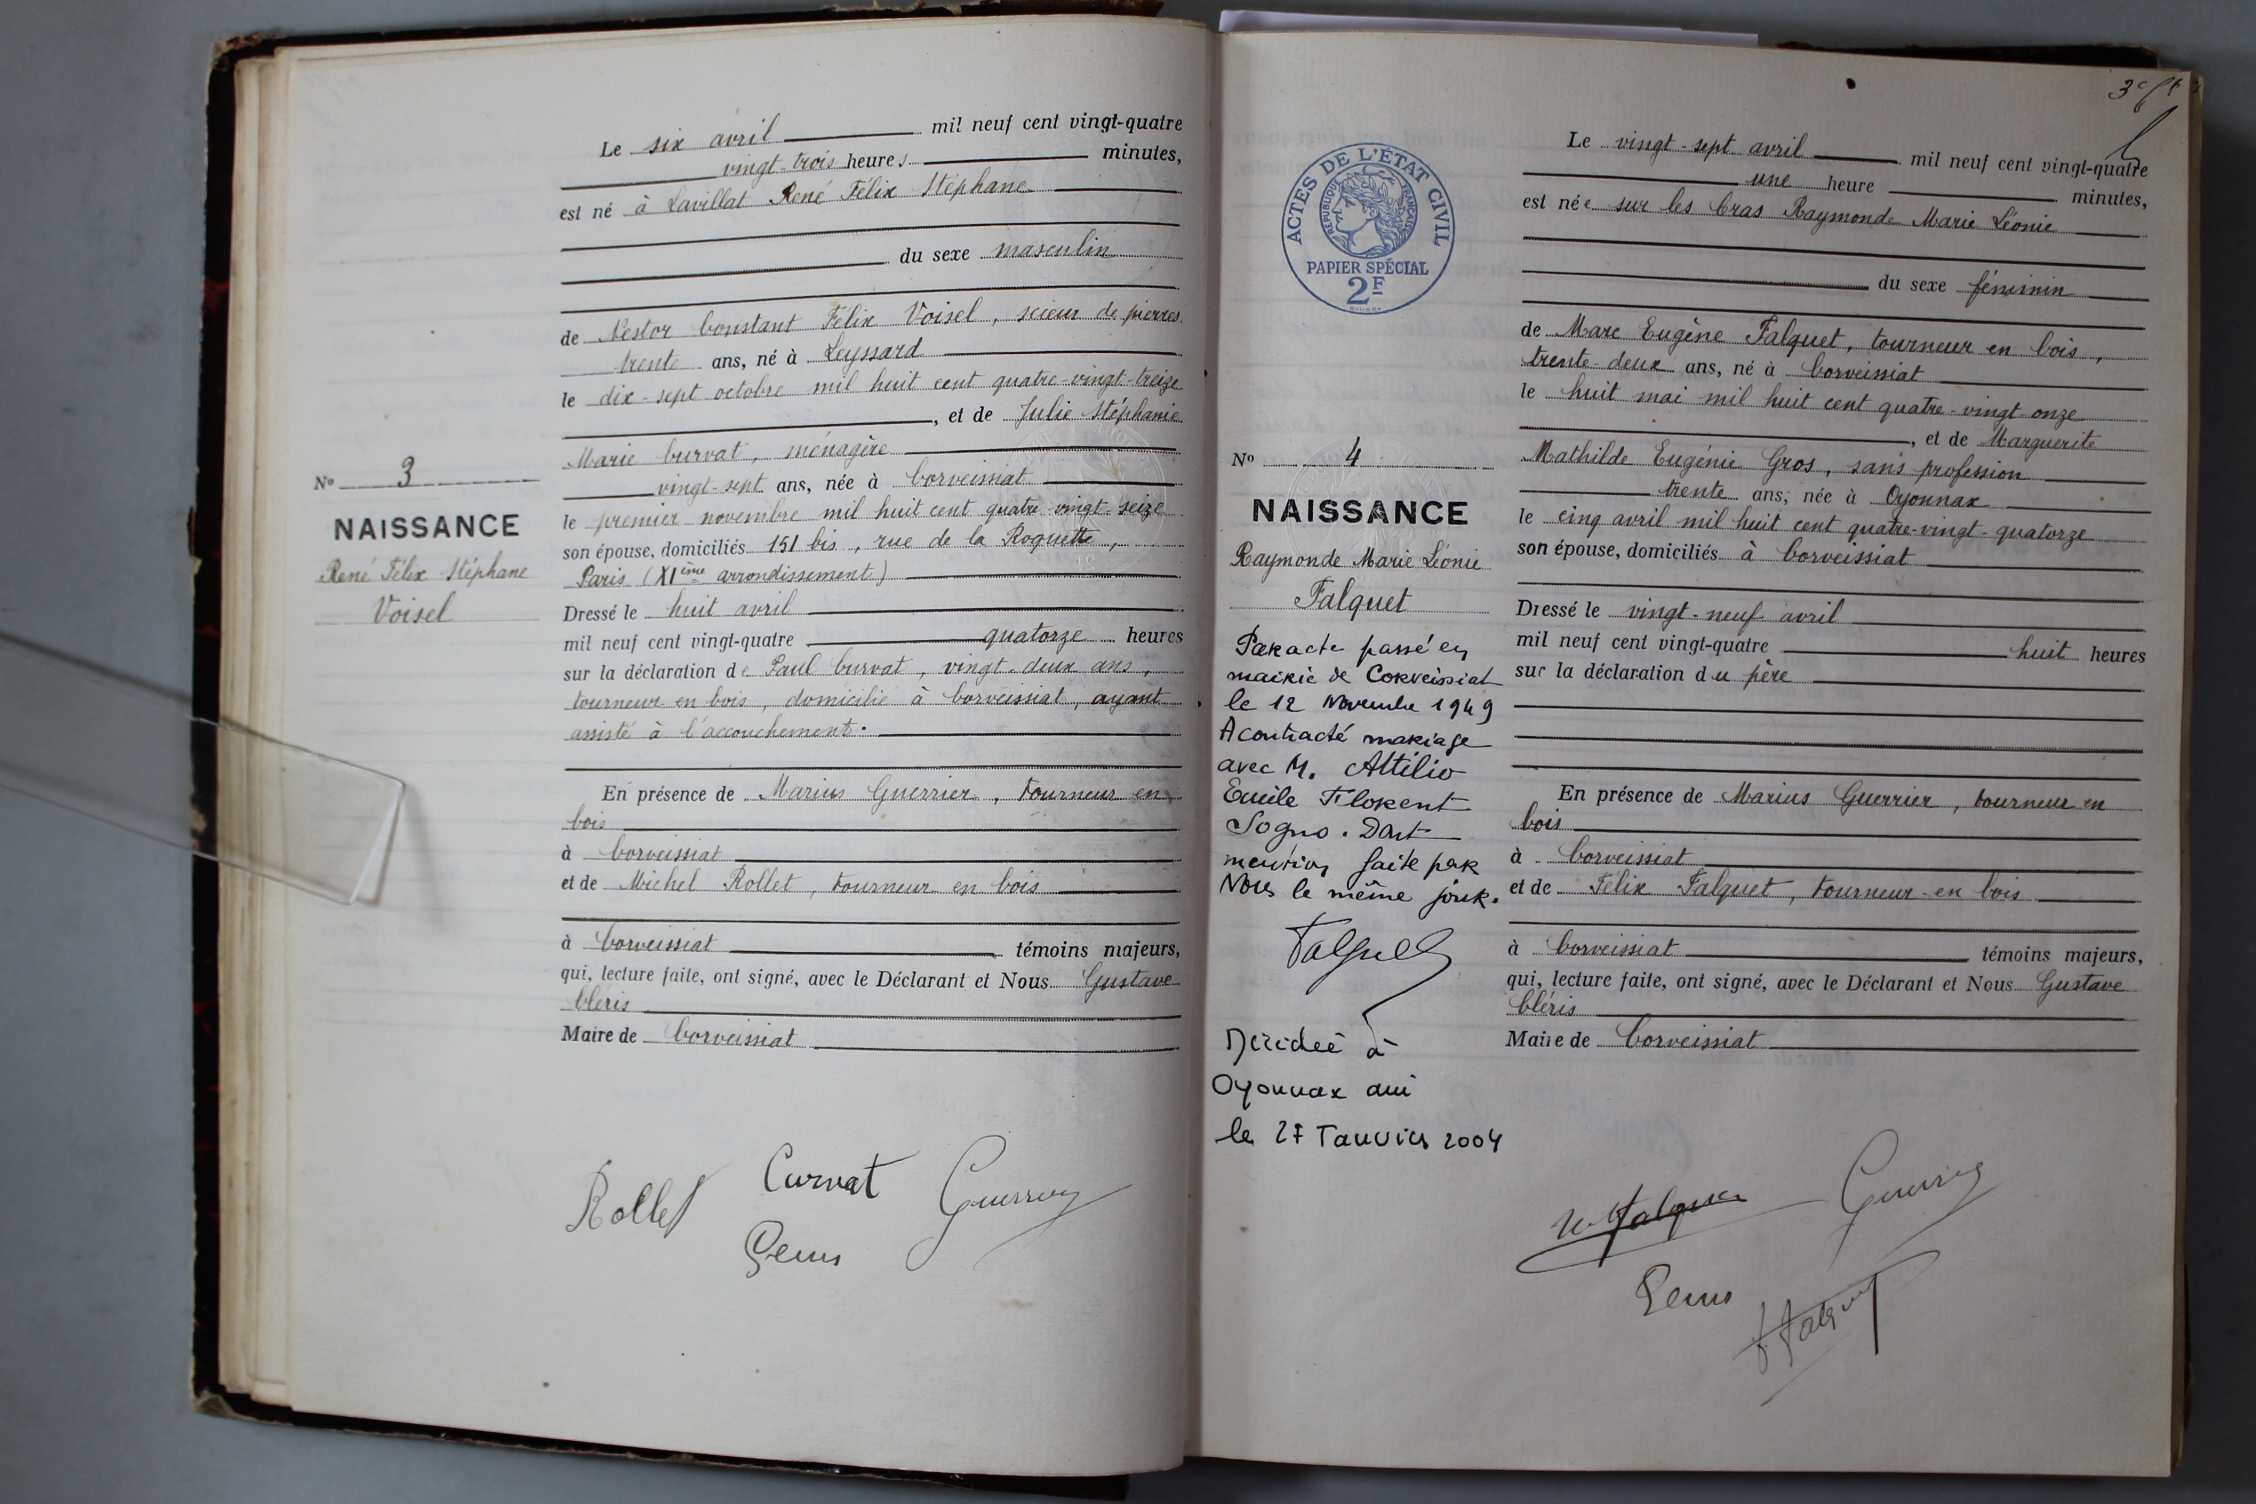 Le six avril mil neuf cent vingt-quatre
vingt-trois heures minutes,
est né à Lavillat René Félix Stéphane
du sexe masculin
de Nestor Constant Félix Voisel, scieur de pierres
trente ans, né à Leyssard
le dix-sept octobre mil huit cent quatre-vingt-treize
, et de Julie Stéphanie
Marie Curvat, ménagère
vingt-sept ans, née à Corveissiat
le premier novembre mil huit cent quatre-vingt-seize
son épouse, domiciliés 151 bis, rue de la Roquette,
Paris (XIème arrondissement)
Dressé le huit avril
mil neuf cent vingt-quatre quatorze heures
sur la déclaration de Paul Curvat, vingt-deux ans,
tourneur en bois, domicilié à Corveissiat, ayant
assisté à l'accouchement.
En présence de Marius Guerrier, tourneur en
bois
à Corveissiat
et de Michel Rollet, tourneur en bois
à Corveissiat témoins majeurs,
qui, lecture faite, ont signé, avec le Déclarant et Nous Gustave
Cléris
Maire de Corveissiat
No 3
NAISSANCE
René Félix Stéphane
Voisel
Rollet Curvat Guerrier
ACTES DE L'ÉTAT CIVIL
RÉPUBLIQUE FRANÇAISE
PAPIER SPÉCIAL
2F
No 4
NAISSANCE
Raymonde Marie Léonie
Falquet
Par acte passé en
mairie de Corveissiat
le 12 Novembre 1949
A contracté mariage
avec M. Attilio
Emile Florent
Sogno. Dont
mention faite par
Nous le même jour.
Falquet
Décédée à
Oyonnax ain
le 27 Janvier 2004
Le vingt-sept avril mil neuf cent vingt-quatre
une heure minutes,
est née sur les Cras Raymonde Marie Léonie
du sexe féminin
de Marc Eugène Falquet, tourneur en bois,
trente-deux ans, né à Corveissiat
le huit mai mil huit cent quatre-vingt-onze
, et de Marguerite
Mathilde Eugénie Gros, sans profession
trente ans, née à Oyonnax
le cinq avril mil huit cent quatre-vingt-quatorze
son épouse, domiciliés à Corveissiat
Dressé le vingt-neuf avril
mil neuf cent vingt-quatre huit heures
sur la déclaration du père
En présence de Marius Guerrier, tourneur en
bois
à Corveissiat
et de Félix Falquet, tourneur en bois
à Corveissiat témoins majeurs,
qui, lecture faite, ont signé, avec le Déclarant et Nous Gustave
Cléris
Maire de Corveissiat
Falquet Guerrier
Falquet